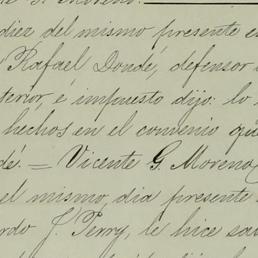 diez del mismo presente e
Rafael Dondé, defensor
terior, é impuesto dijo: lo
hechos en el convenio que
dé. = Vicente G. Moreno
el mismo dia presente
rdo J. Perry, le hice sa